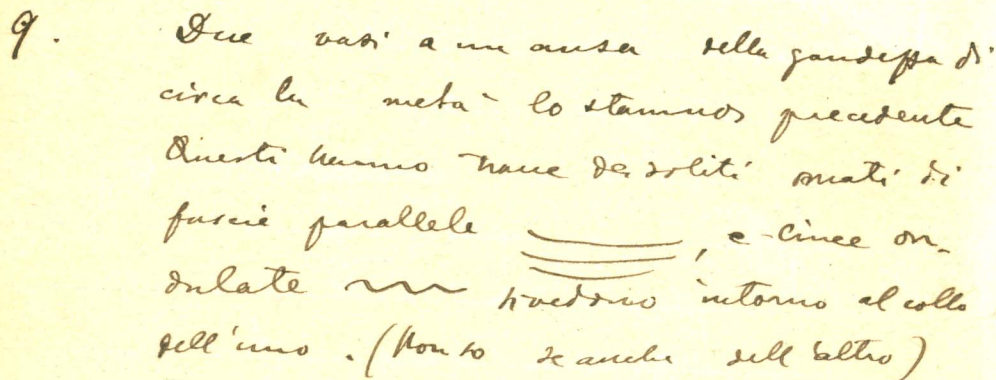 9. Due vasi a un ansa della grandezza di
circa la metà lo stamnos precedente
Questi hanno trace dei soliti ornati di
fascie parallele , e linee on-
dulate si vedono intorno al collo
dell'uno. (Non so se anche dell'altro)